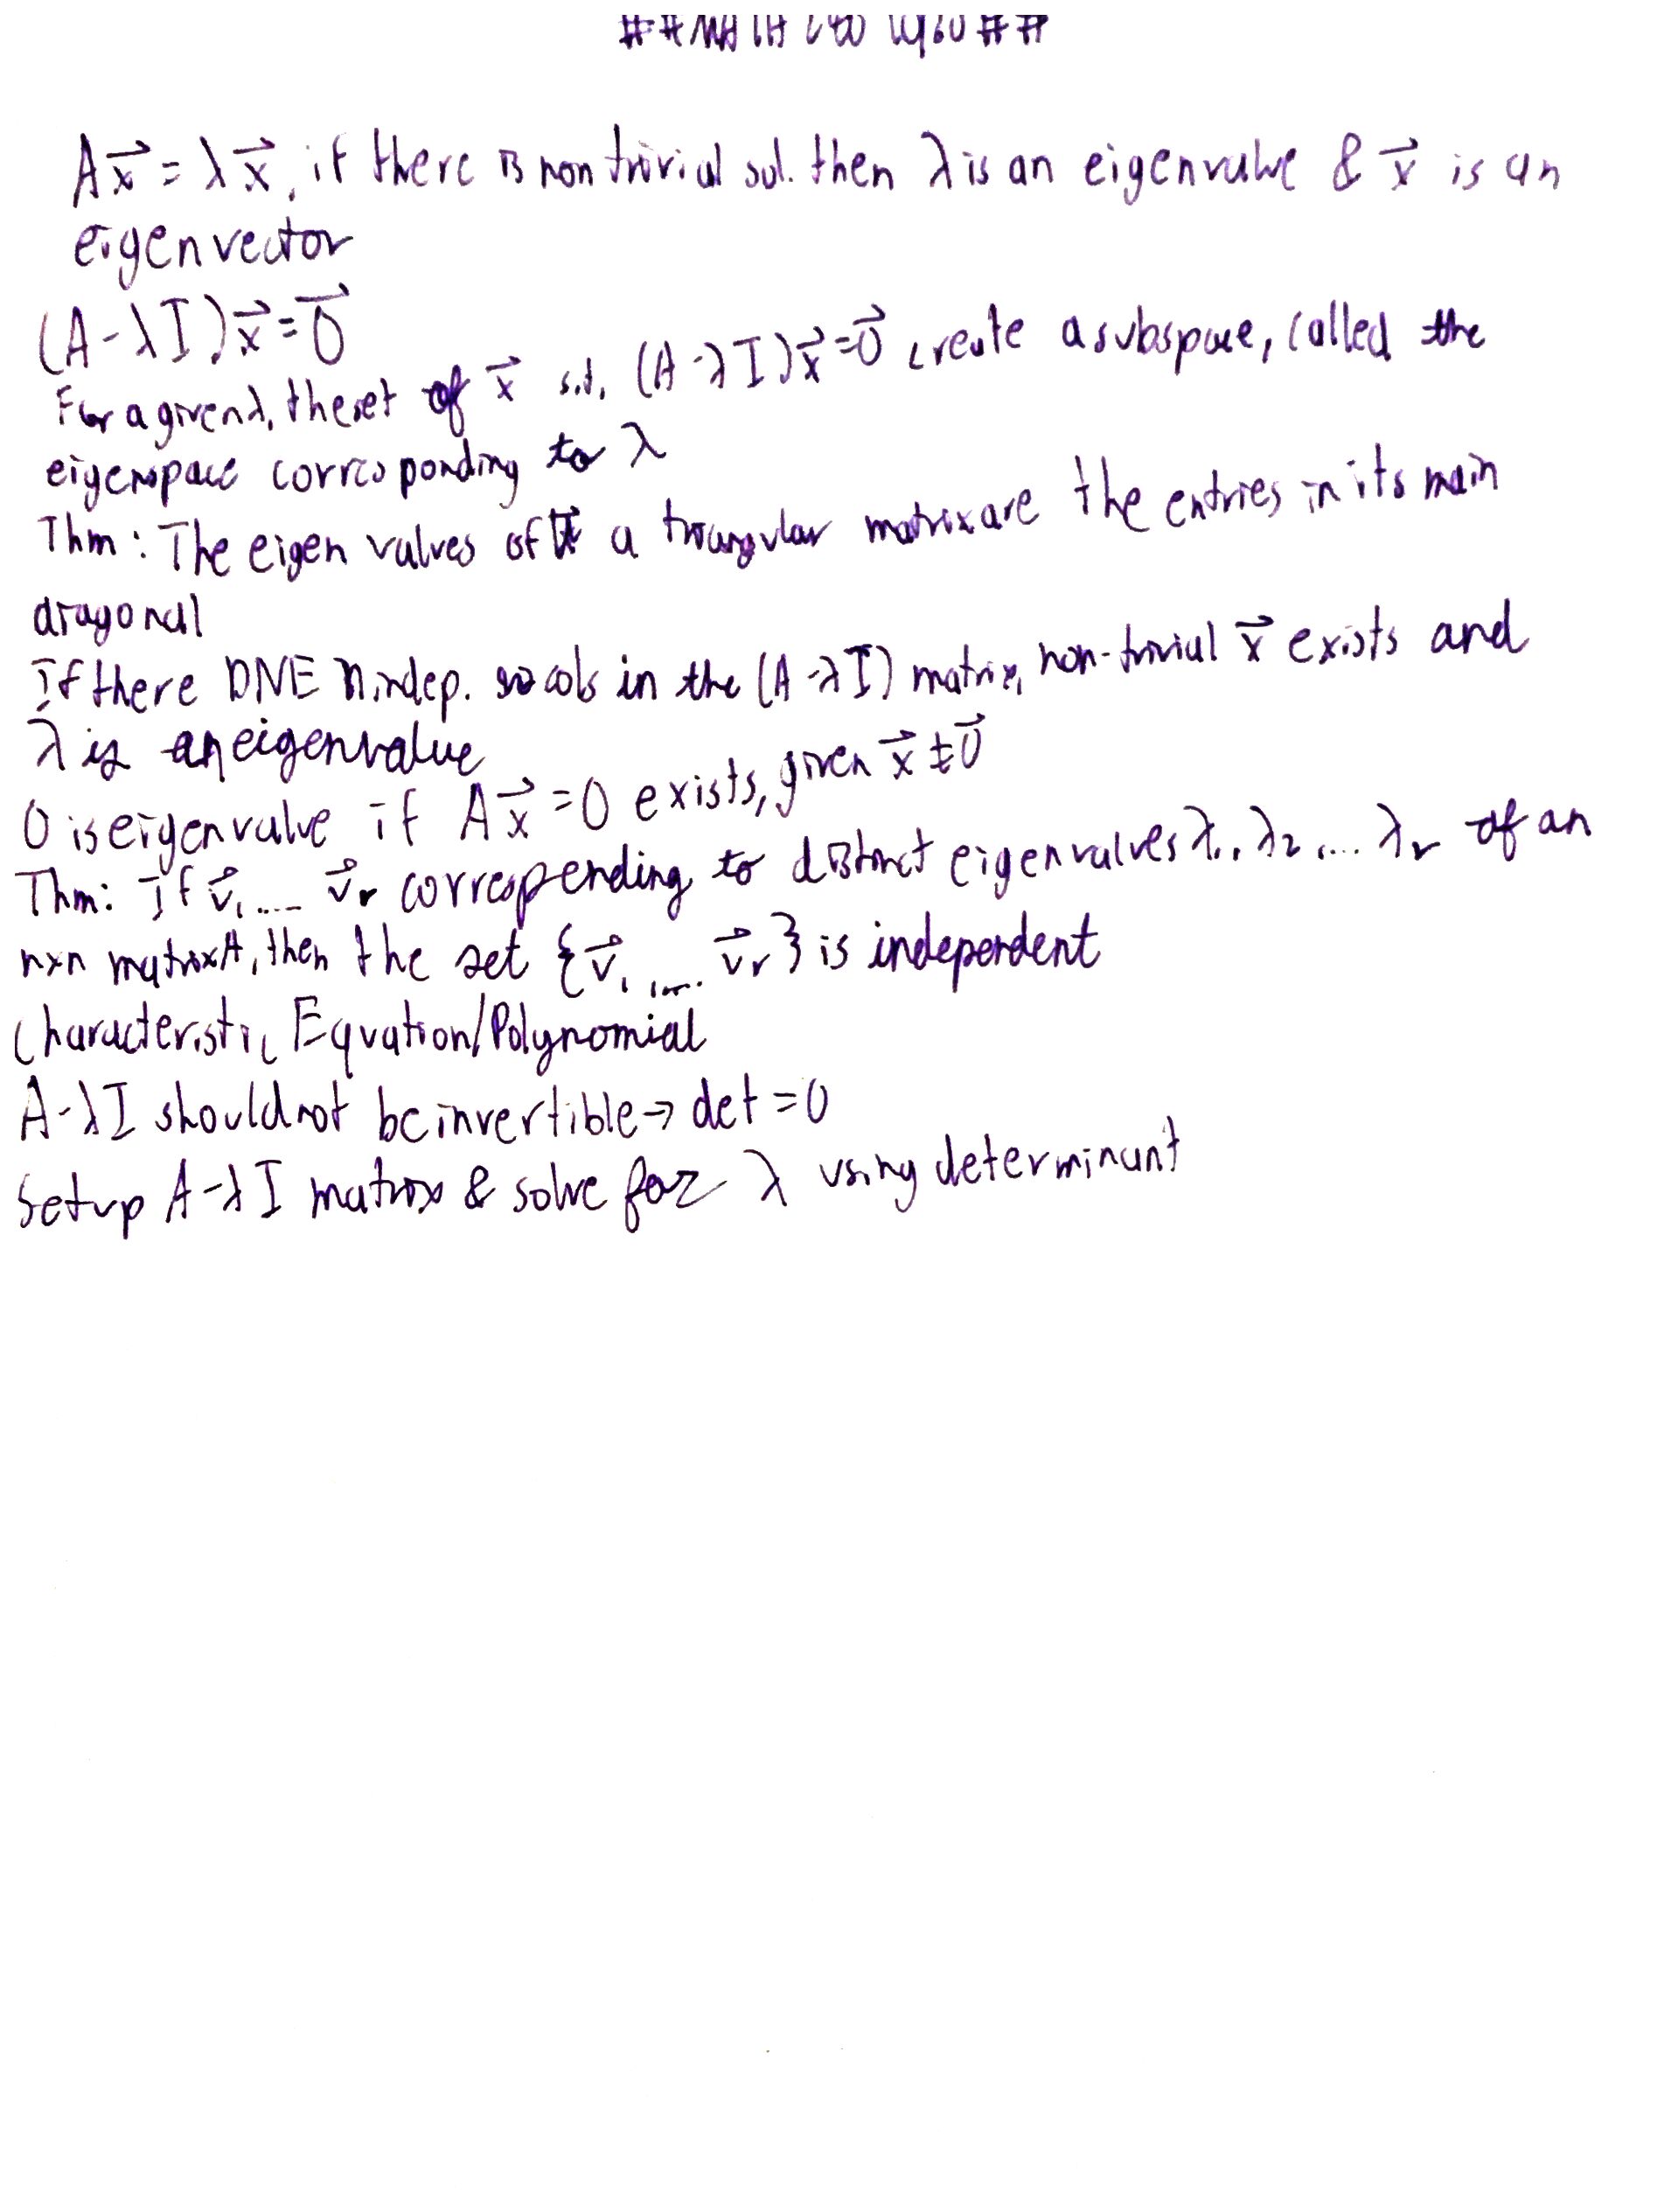 A\vec{x} = λ\vec{x}, if there is non trivial sol. then λ is an eigenvalue & \vec{x} is an
eigenvector
(A-λI)\vec{x} = \vec{0}
For a given λ, the set of \vec{x} s.t. (A-λI)\vec{x} = \vec{0} create a subspace, called the
eigenspace corresponding to λ
Thm: The eigen values of a triangular matrix are the entries in its main
diagonal
If there DNE n indep. cols in the (A-λI) matrix, non-trivial \vec{x} exists and
λ is an eigenvalue
0 is eigenvalue if A\vec{x} = 0 exists, given \vec{x} ≠ \vec{0}
Thm: If \vec{v}₁, .... \vec{v}ᵣ correspending to distinct eigenvalues λ₁, λ₂, .... λᵣ of an
n×n matrix A, then the set {\vec{v}₁, .... \vec{v}ᵣ} is independent
Characteristic Equation/Polynomial
A-λI should not be invertible → det = 0
Setup A-λI matrix & solve for λ using determinant